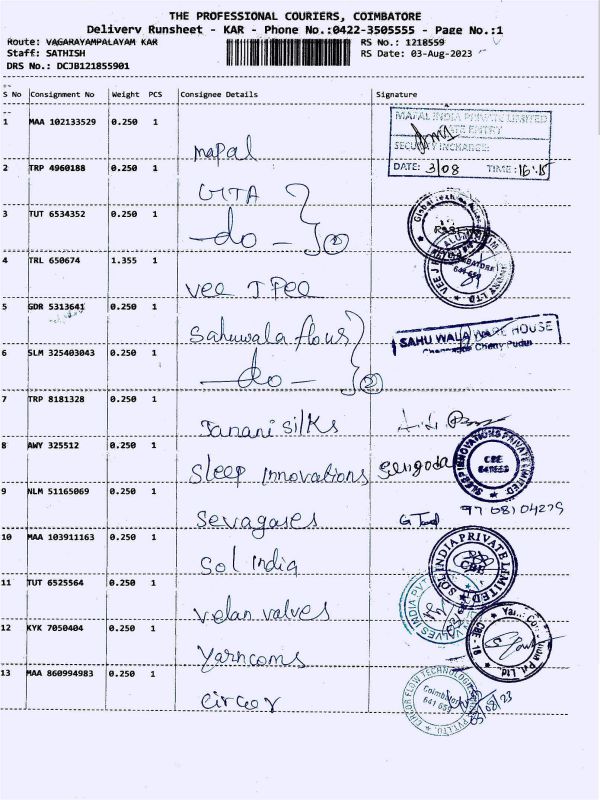 THE PROFESSIONAL COURIERS, COIMBATORE
Delivery Runsheet - KAR - Phone No.:0422-3505555 - Page No.:1
Route: VAGARAYAMPALAYAM KAR RS No.: 1218559
Staff: SATHISH RS Date: 03-Aug-2023
DRS No.: DCJB121855901
S No Consignment No Weight PCS Consignee Details Signature
1 MAA 102133529 0.250 1 mapal
MAPAL INDIA PRIVATE LIMITED
GATE ENTRY
SECURITY INCHARGE:
DATE: 3/08 TIME: 16:15
2 TRP 4960188 0.250 1 GITA
3 TUT 6534352 0.250 1 -do- (2)
4 TRL 650674 1.355 1 Vee J Pee
COIMBATORE
5 GDR 5313641 0.250 1 Sahuwala flour
SAHU WALA WARE HOUSE
6 SLM 325403043 0.250 1 -do- (2)
7 TRP 8181328 0.250 1 Janani silks
8 AWY 325512 0.250 1 Sleep Innovations
SLEEP INNOVATIONS PRIVATE LIMITED
CBE
9 NLM 51165069 0.250 1 Sevagases
10 MAA 103911163 0.250 1 Sol India
SOL INDIA PRIVATE LIMITED
CBE
11 TUT 6525564 0.250 1 velan valves
VALVES INDIA PVT
12 KYK 7050404 0.250 1 Yarncoms
India Pvt. Ltd.
13 MAA 860994983 0.250 1 circor
CIRCOR FLOW TECHNOLOGIES
Coimbatore
03/08/23